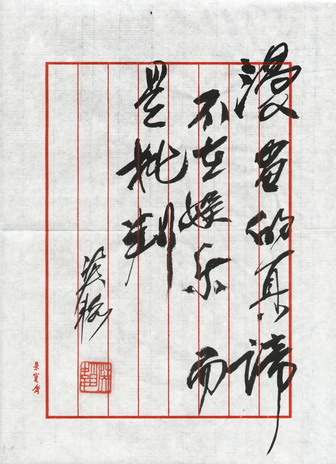 漫画的真谛
不在娱乐而
是批判
英韬
荣宝斋